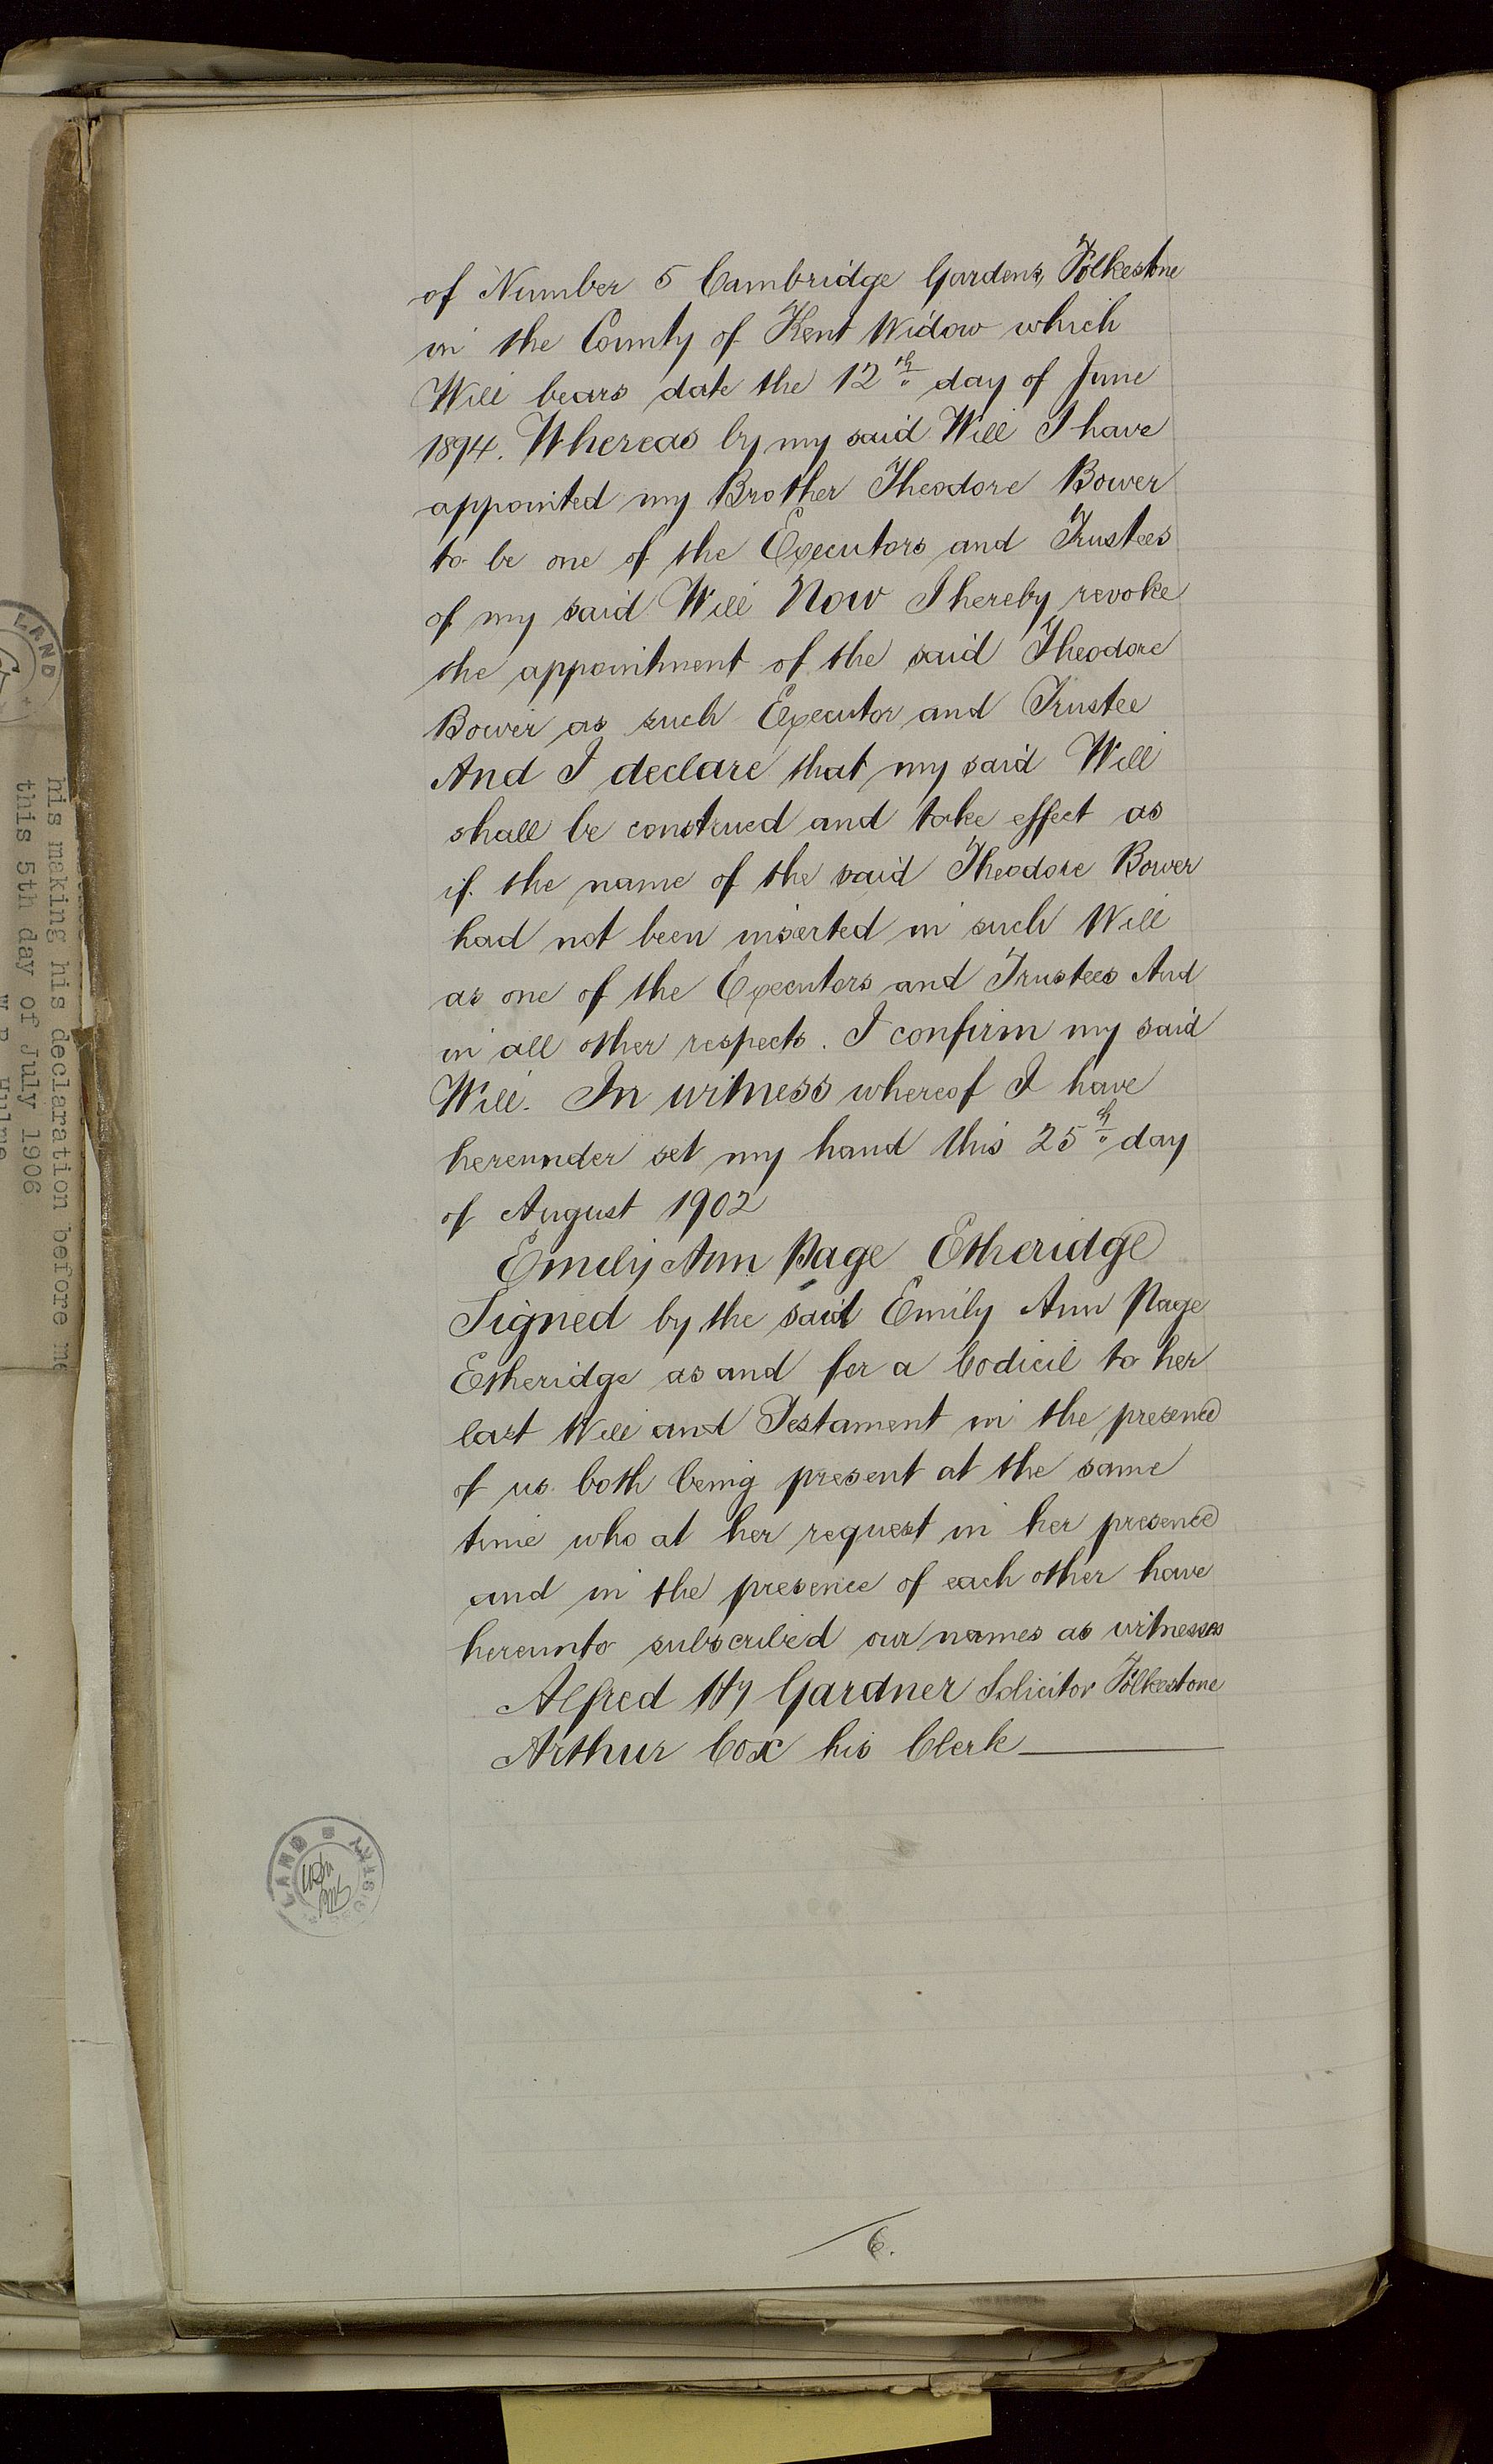 of Number 5 Cambridge Gardens, Folkestone
in the County of Kent Widow which
Will bears date the 12th day of June
1894. Whereas by my said Will I have
appointed my Brother Theodore Bower
to be one of the Executors and Trustees
of my said Will Now I hereby revoke
the appointment of the said Theodore
Bower as such Executor and Trustee
And I declare that my said Will
shall be construed and take effect as
if the name of the said Theodore Bower
had not been inserted in such Will
as one of the Executors and Trustees And
in all other respects. I confirm my said
Will. In witness whereof I have
hereunder set my hand this 25th day
of August 1902
Emily Ann Page Etheridge
Signed by the said Emily Ann Page
Etheridge as and for a Codicil to her
last Will and Testament in the presence
of us both being present at the same
time who at her request in her presence
and in the presence of each other have
hereunto subscribed our names as witnesses
Alfred Hy Gardner Solicitor Folkestone
Arthur Cox his Clerk
LAND
6.
LAND
his making his declaration before me
this 5th day of July 1906
Hulme